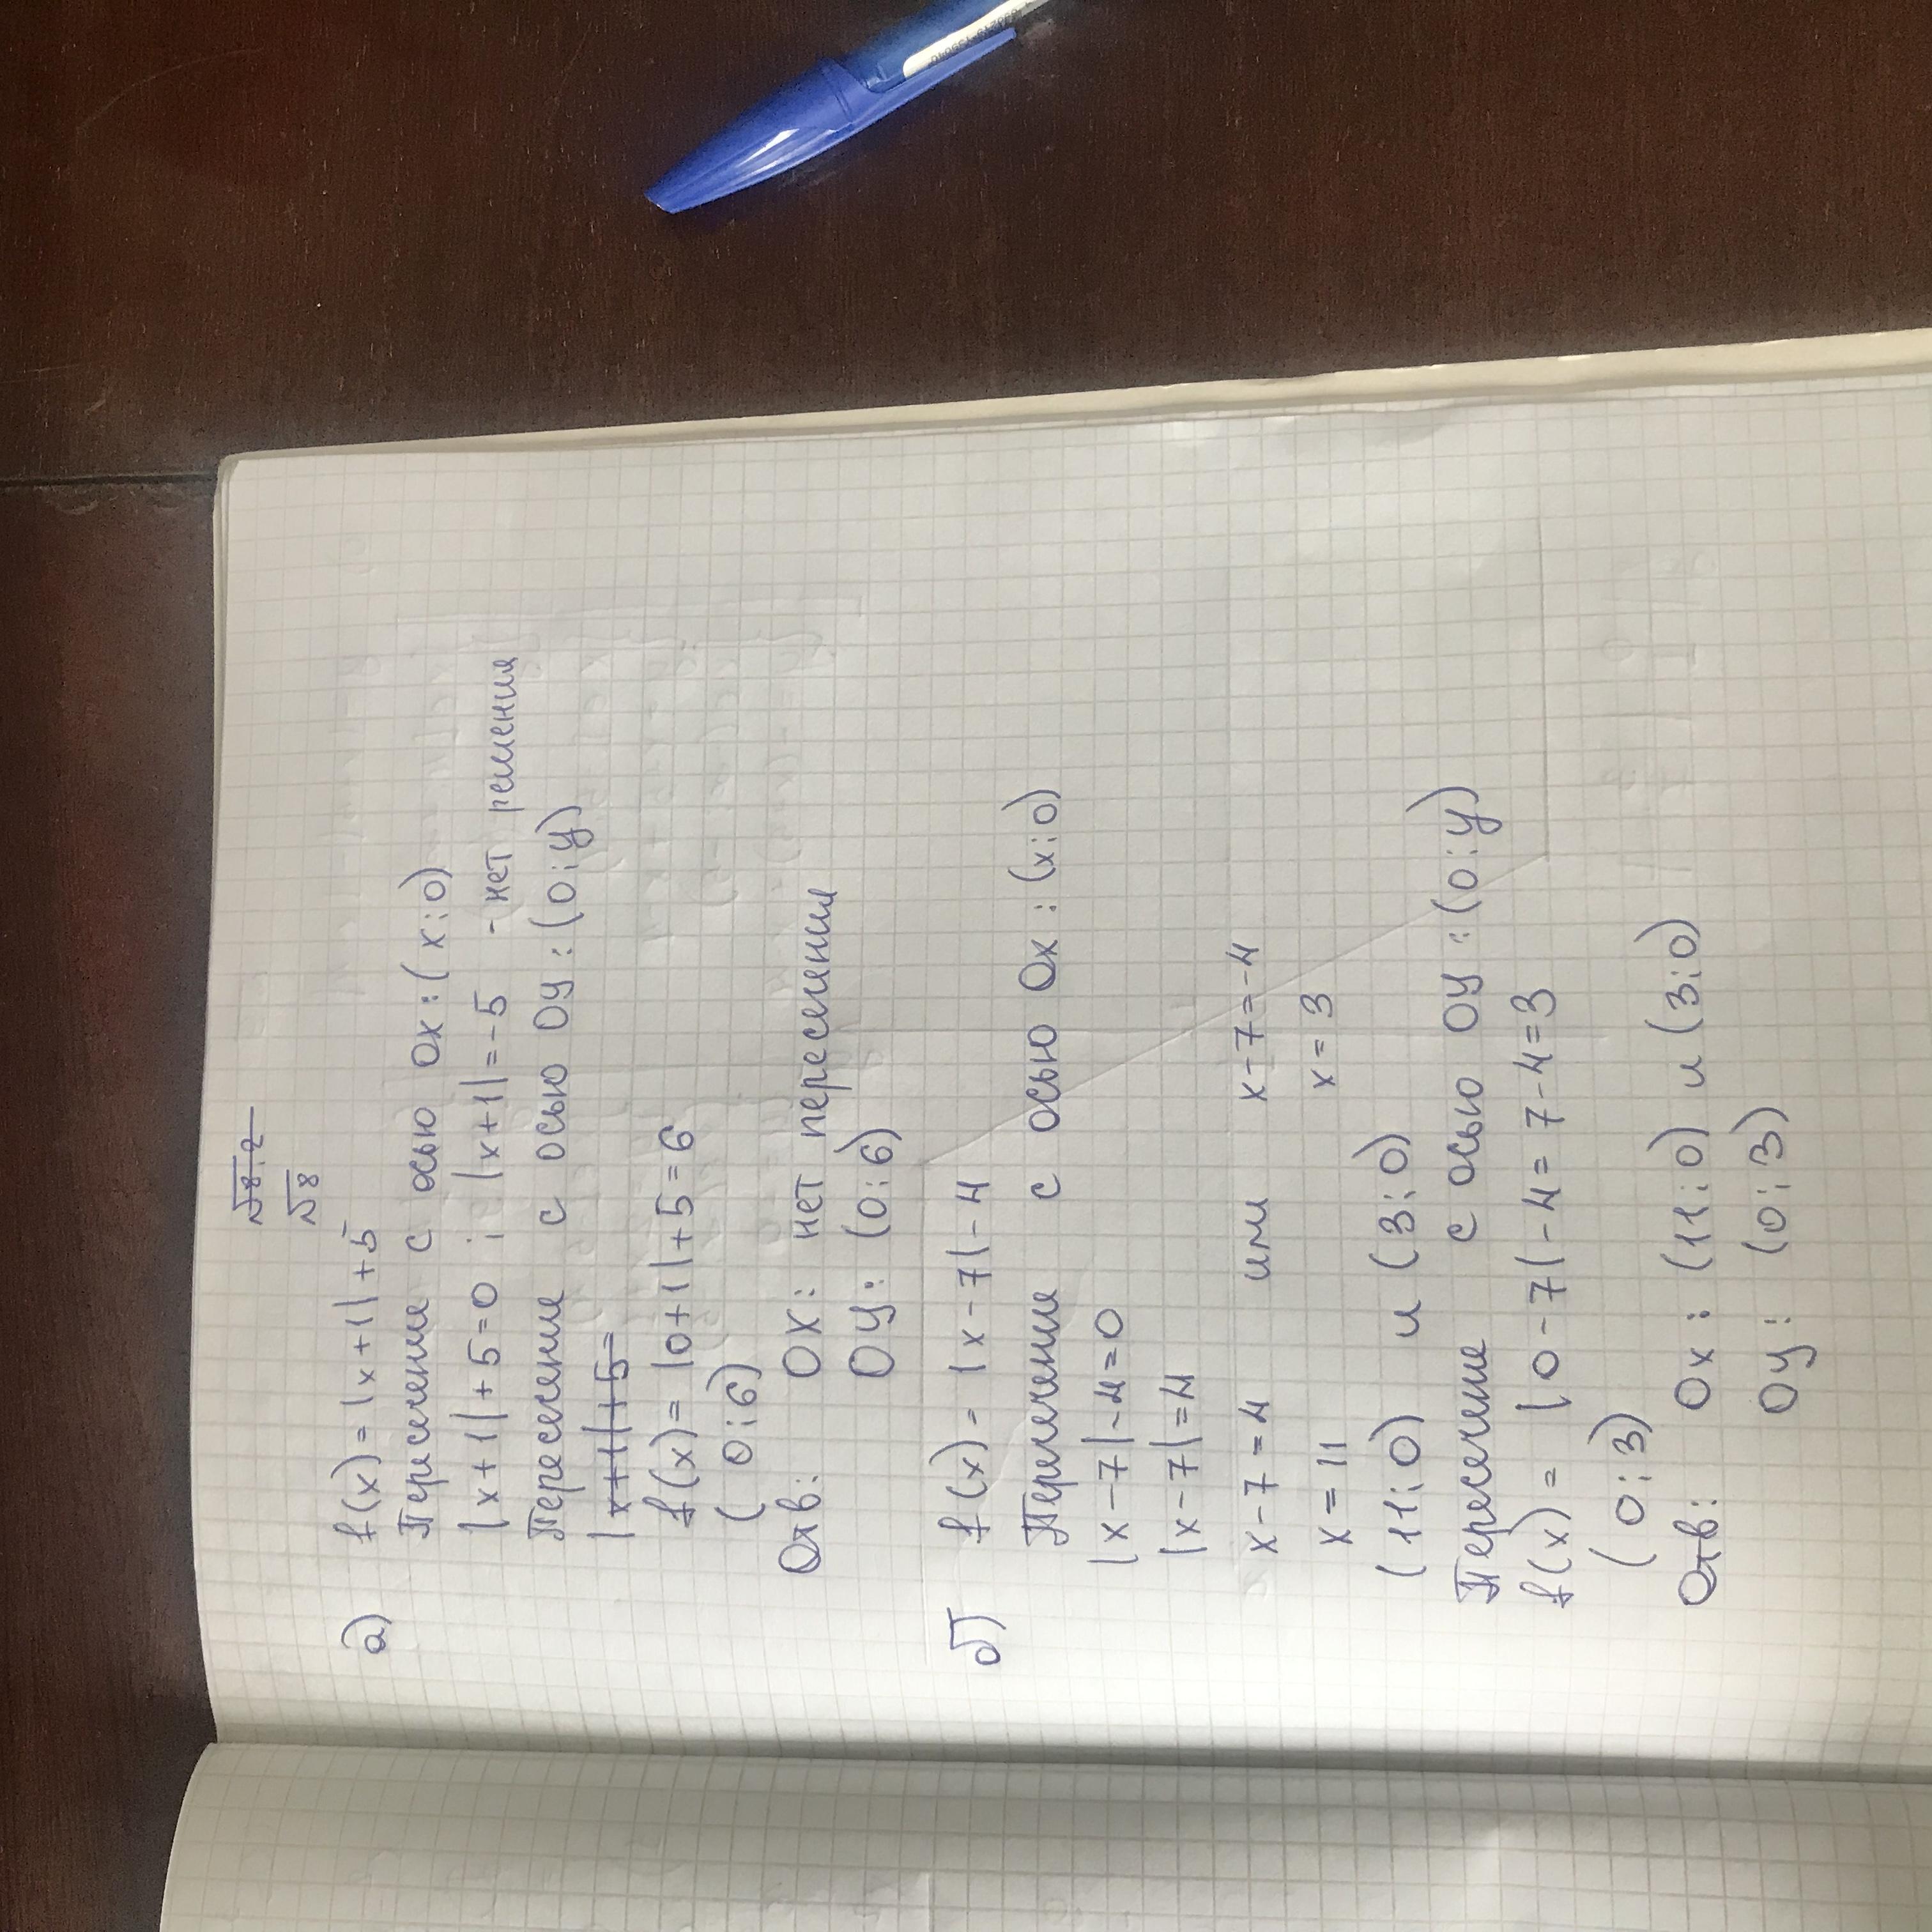 √8.2
√8
а) f(x) = |x+1|+5
Пересечение с осью Ox: (x;0)
|x+1|+5=0 ; |x+1|=-5 - нет решения
Пересечение с осью Oy: (0;y)
|x+1|+5=
f(x) = |0+1|+5=6
(0;6)
Отв: OX: нет пересечения
Oy: (0;6)
б) f(x) = |x-7|-4
Пересечение с осью Ox: (x;0)
|x-7|-4=0
|x-7|=4
x-7=4 или x-7=-4
x=11 x=3
(11;0) и (3;0)
Пересечение с осью Oy: (0;y)
f(x) = |0-7|-4=7-4=3
(0;3)
Отв: Ox: (11;0) и (3;0)
Oy: (0;3)